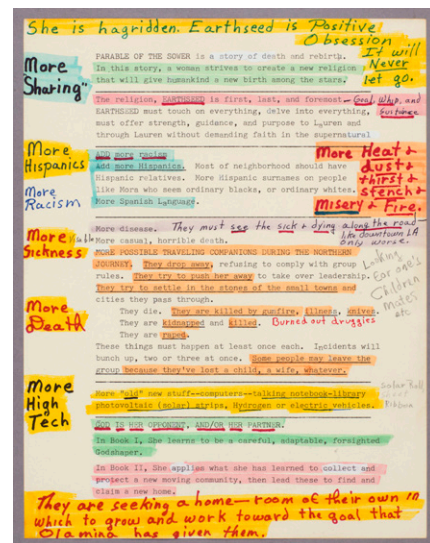 She is hagridden. Earthseed is Positive
Obsession
It will
Never
let go.
More
"Sharing"
PARABLE OF THE SOWER is a story of death and rebirth.
In this story, a woman strives to create a new religion
that will give humankind a new birth among the stars.
The religion, EARTHSEED is first, last, and foremost— Goal, Whip, and
Guidance
EARTHSEED must touch on everything, delve into everything,
must offer strength, guidance, and purpose to Lauren and
through Lauren without demanding faith in the supernatural
More
Hispanics
More
Racism
ADD more racism
Add more Hispanics. Most of neighborhood should have
Hispanic relatives. More Hispanic surnames on people
like Mora who seem ordinary blacks, or ordinary whites.
More Spanish Language.
More Heat &
dust &
thirst &
Stench &
Misery & Fire.
More
Sickness
More disease. They must see the sick & dying along the road
like downtown LA
only worse.
More casual, horrible death.
MORE POSSIBLE TRAVELING COMPANIONS DURING THE NORTHERN
JOURNEY. They drop away, refusing to comply with group
rules. They try to push her away to take over leadership.
They try to settle in the stones of the small towns and
cities they pass through.
Looking
for one's
Children
Mates
etc
More
Death
They die. They are killed by gunfire, illness, knives.
They are kidnapped and killed. Burned out druggies
They are raped.
These things must happen at least once each. Incidents will
bunch up, two or three at once. Some people may leave the
group because they've lost a child, a wife, whatever.
More
High
Tech
More "old" new stuff--computers--talking notebook-library
photovoltaic (solar) strips, Hydrogen or electric vehicles.
GOD IS HER OPPONENT, AND/OR HER PARTNER.
In Book I, She learns to be a careful, adaptable, forsighted
Godshaper.
In Book II, She applies what she has learned to collect and
protect a new moving community, then lead these to find and
claim a new home.
They are seeking a home—room of their own in
which to grow and work toward the goal that
Olamina has given them.